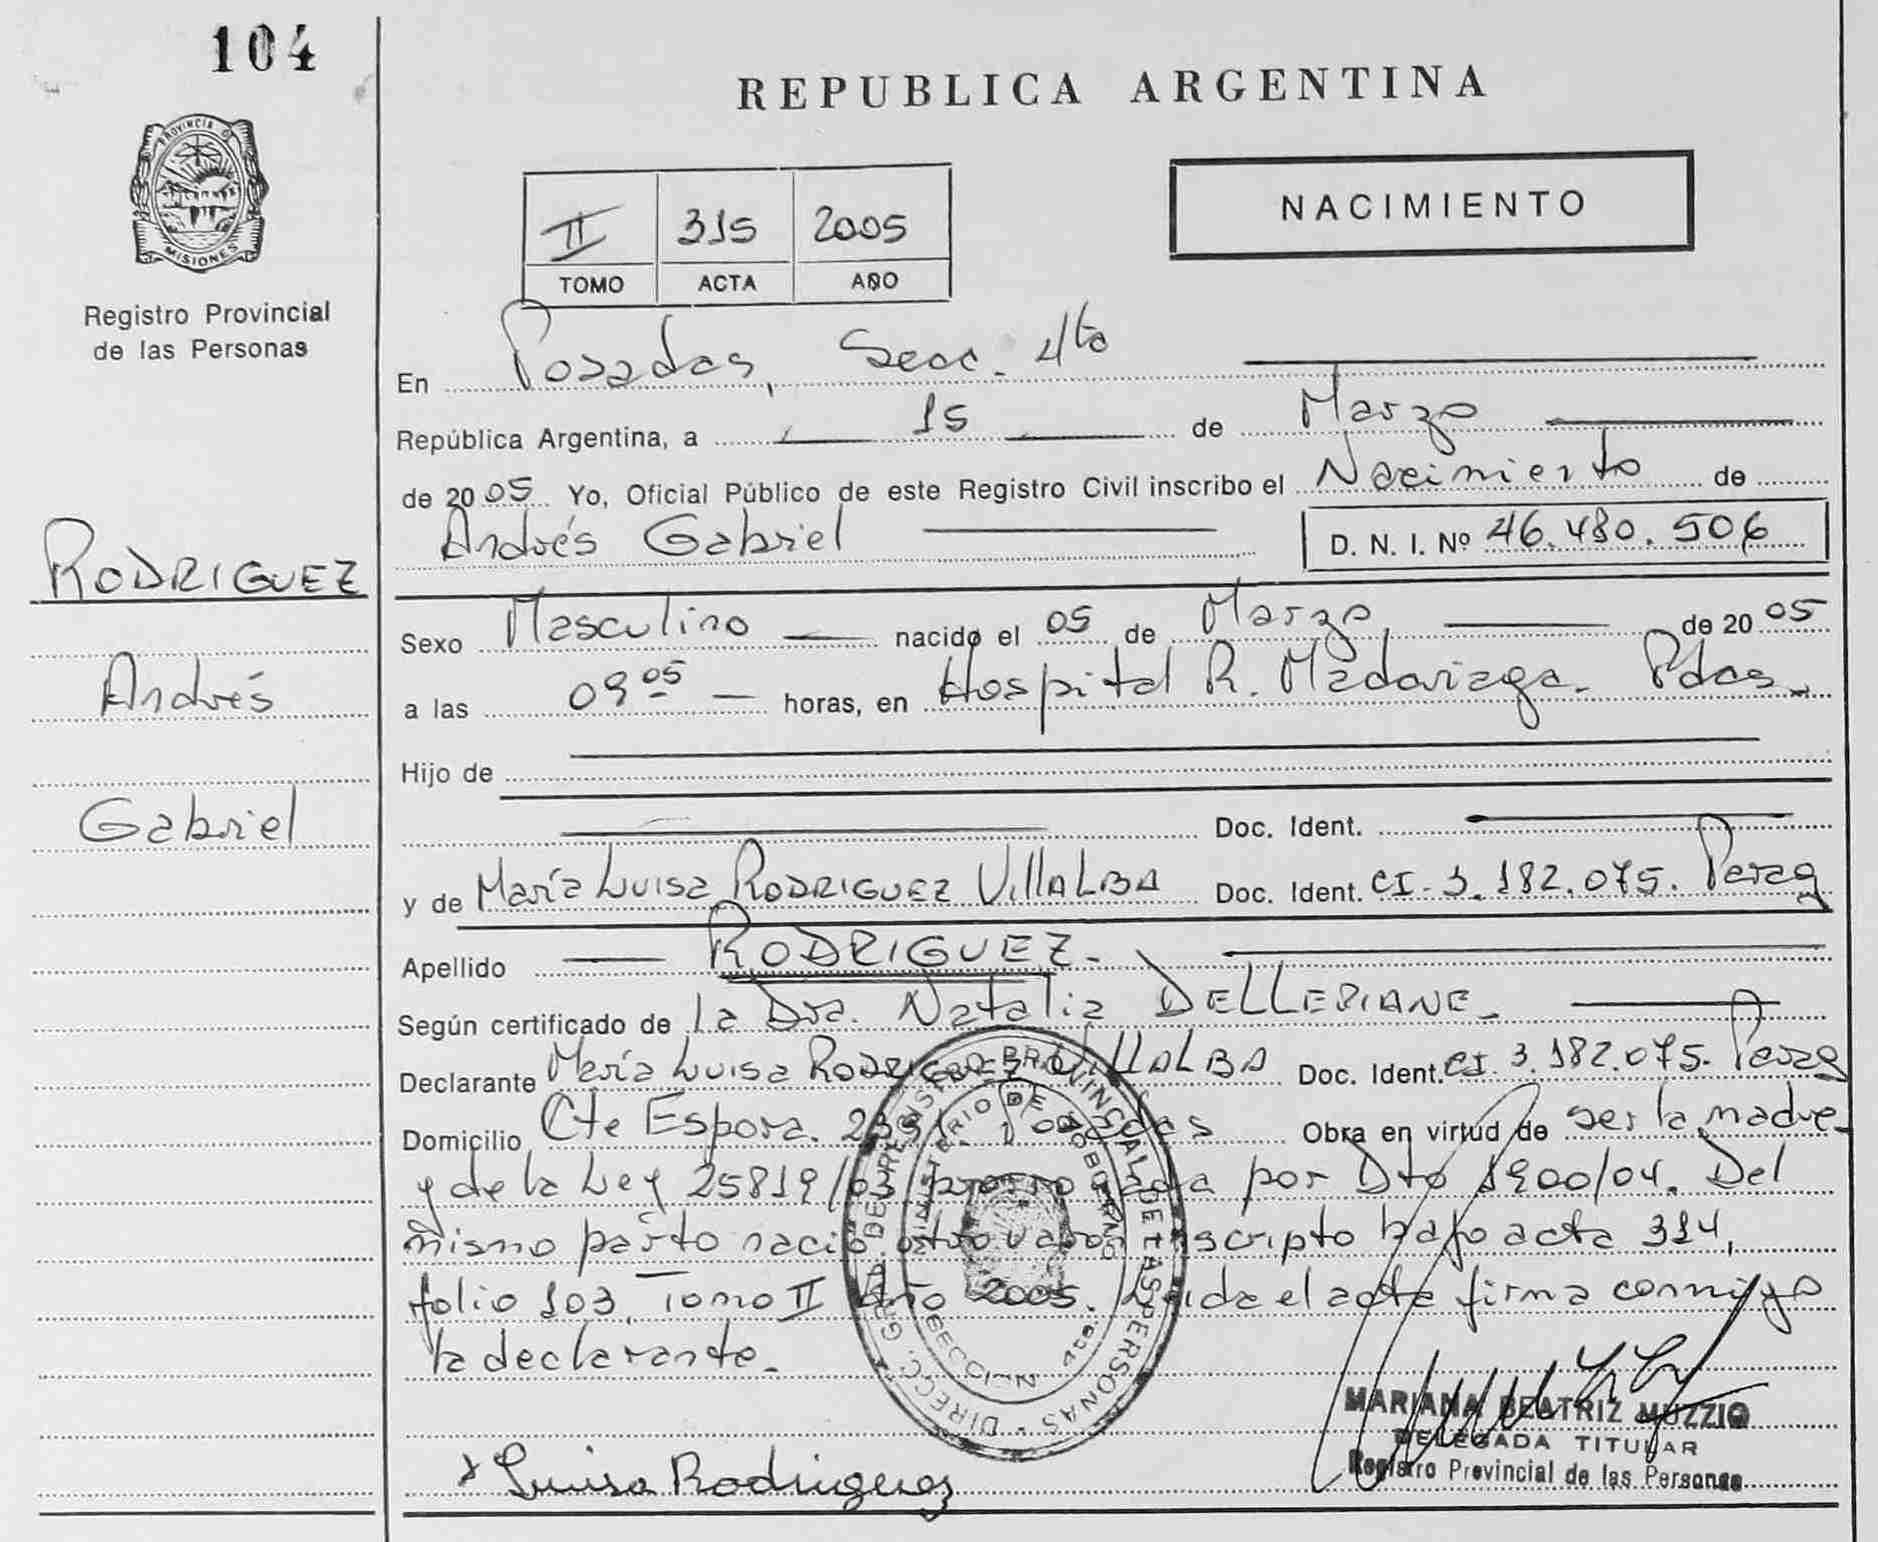 104
PROVINCIA D
MISIONES
Registro Provincial
de las Personas
REPUBLICA ARGENTINA
II 315 2005
TOMO ACTA AÑO
NACIMIENTO
En Posadas, Secc. 4ta
República Argentina, a 15 de Marzo
de 2005 Yo, Oficial Público de este Registro Civil inscribo el Nacimiento de
Andrés Gabriel
D. N. I. Nº 46.480.506
RODRIGUEZ
Andrés
Gabriel
Sexo Masculino nacido el 05 de Marzo de 2005
a las 09 05 horas, en Hospital R. Madariaga. Pdas.
Hijo de
Doc. Ident.
y de María Luisa RODRIGUEZ VILLALBA Doc. Ident. CI. 3.182.075. Parag
Apellido RODRIGUEZ.
Según certificado de la Dra. Natalia DELLEPIANE.
Declarante María Luisa RODRIGUEZ VILLALBA Doc. Ident. CI. 3.182.075. Parag
Domicilio Cte Espora. Posadas Obra en virtud de ser la madre
y de la Ley 25819/03 prorrogada por Dto 1900/04. Del
mismo parto nació otro varón inscripto bajo acta 314,
folio 103, Tomo II Año 2005. Leída el acta firma conmigo
la declarante.
DIRECC. GRAL. DE REGISTRO PROVINCIAL DE LAS PERSONAS
MINISTERIO DE GOBIERNO
Luisa Rodriguez
MARIANA BEATRIZ MUZZIO
DELEGADA TITULAR
Registro Provincial de las Personas